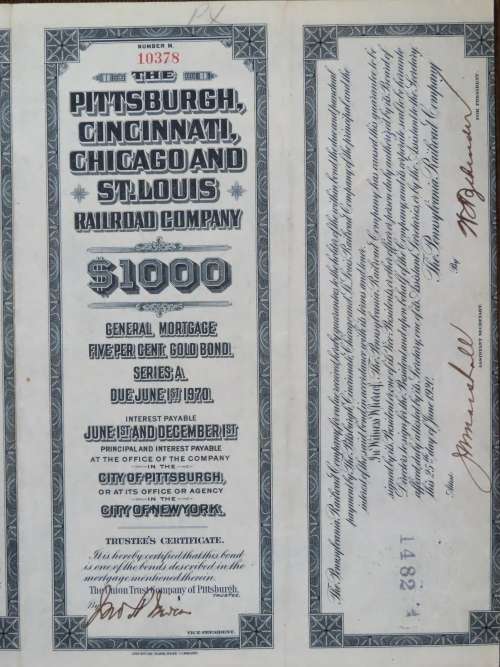 NUMBER M.
10378
THE
PITTSBURGH,
CINCINNATI,
CHICAGO AND
ST. LOUIS
RAILROAD COMPANY
$1000
GENERAL MORTGAGE
FIVE PER CENT. GOLD BOND.
SERIES A.
DUE JUNE 1ST 1970.
INTEREST PAYABLE
JUNE 1ST AND DECEMBER 1ST
PRINCIPAL AND INTEREST PAYABLE
AT THE OFFICE OF THE COMPANY
IN THE
CITY OF PITTSBURGH,
OR AT ITS OFFICE OR AGENCY
IN THE
CITY OF NEW YORK.
TRUSTEE'S CERTIFICATE.
It is hereby certified that this bond
is one of the bonds described in the
mortgage mentioned therein.
The Union Trust Company of Pittsburgh,
TRUSTEE.
By
VICE PRESIDENT.
The Pennsylvania Railroad Company, for value received, hereby guarantees to the holder of the within bond the due and punctual
payment by The Pittsburgh, Cincinnati, Chicago and St. Louis Railroad Company of the principal and the
interest of the said bond in accordance with its terms and tenor.
In Witness Whereof, The Pennsylvania Railroad Company has caused this guarantee to be
signed by its President or one of its Vice Presidents or other officer or person duly authorized by its Board of
Directors to sign for the President and upon behalf of the Company, and its corporate seal to be hereunto
affixed duly attested by its Secretary, one of its Assistant Secretaries, or by the Assistant to the Secretary,
this 25th day of June 1920.
The Pennsylvania Railroad Company
Attest
By
ASSISTANT SECRETARY.
FOR PRESIDENT.
1482